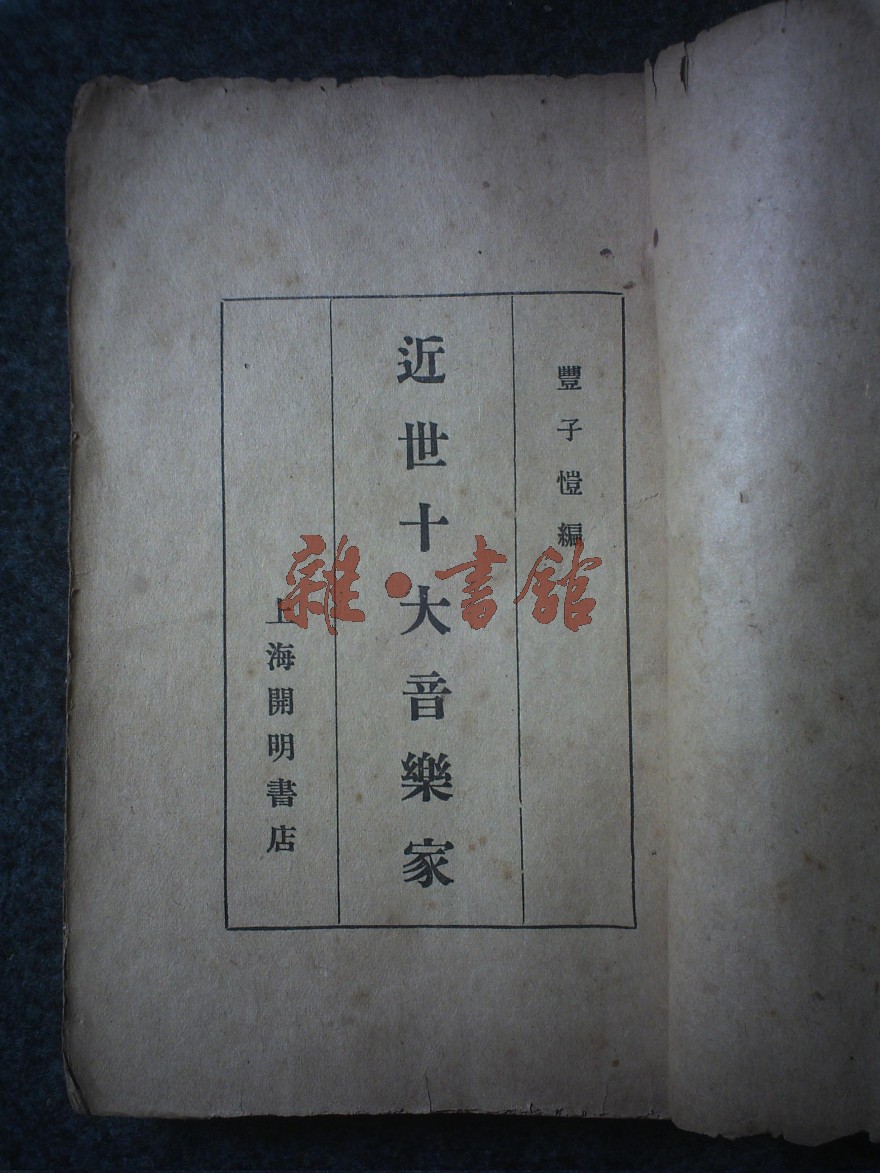 豐子愷編
近世十大音樂家
上海開明書店
雜·書館